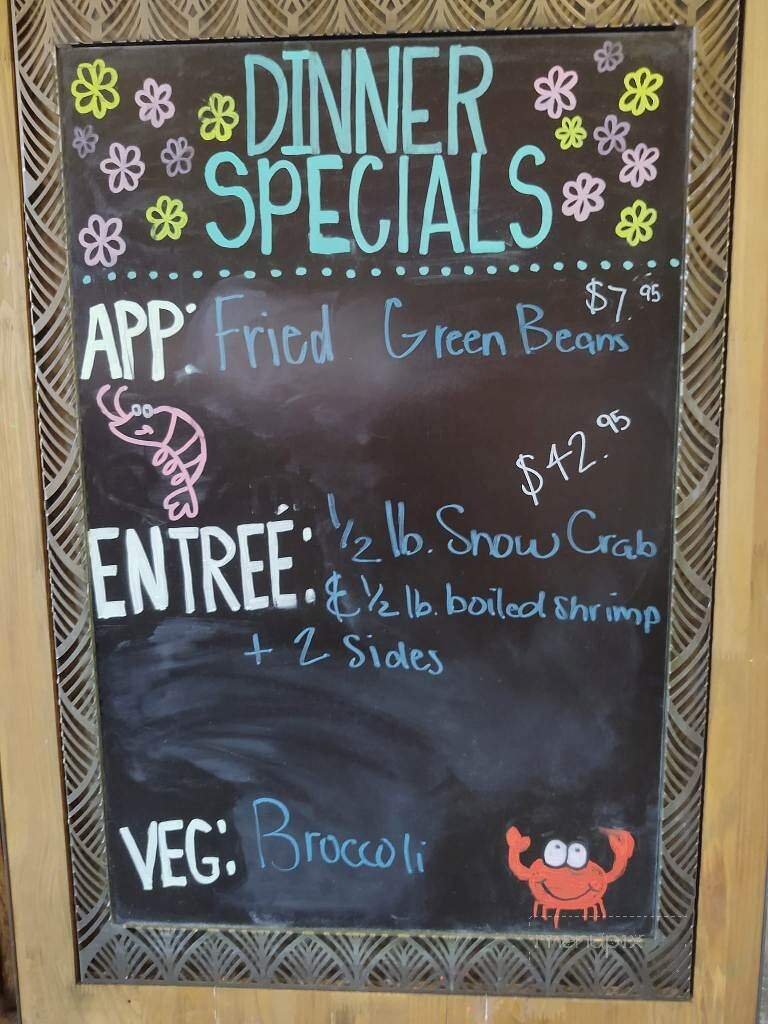 DINNER
SPECIALS
$7.95
APP: Fried Green Beans
$42.95
ENTREÉ: 1/2 lb. Snow Crab
& 1/2 lb. boiled shrimp
+ 2 Sides
VEG: Broccoli
menupix